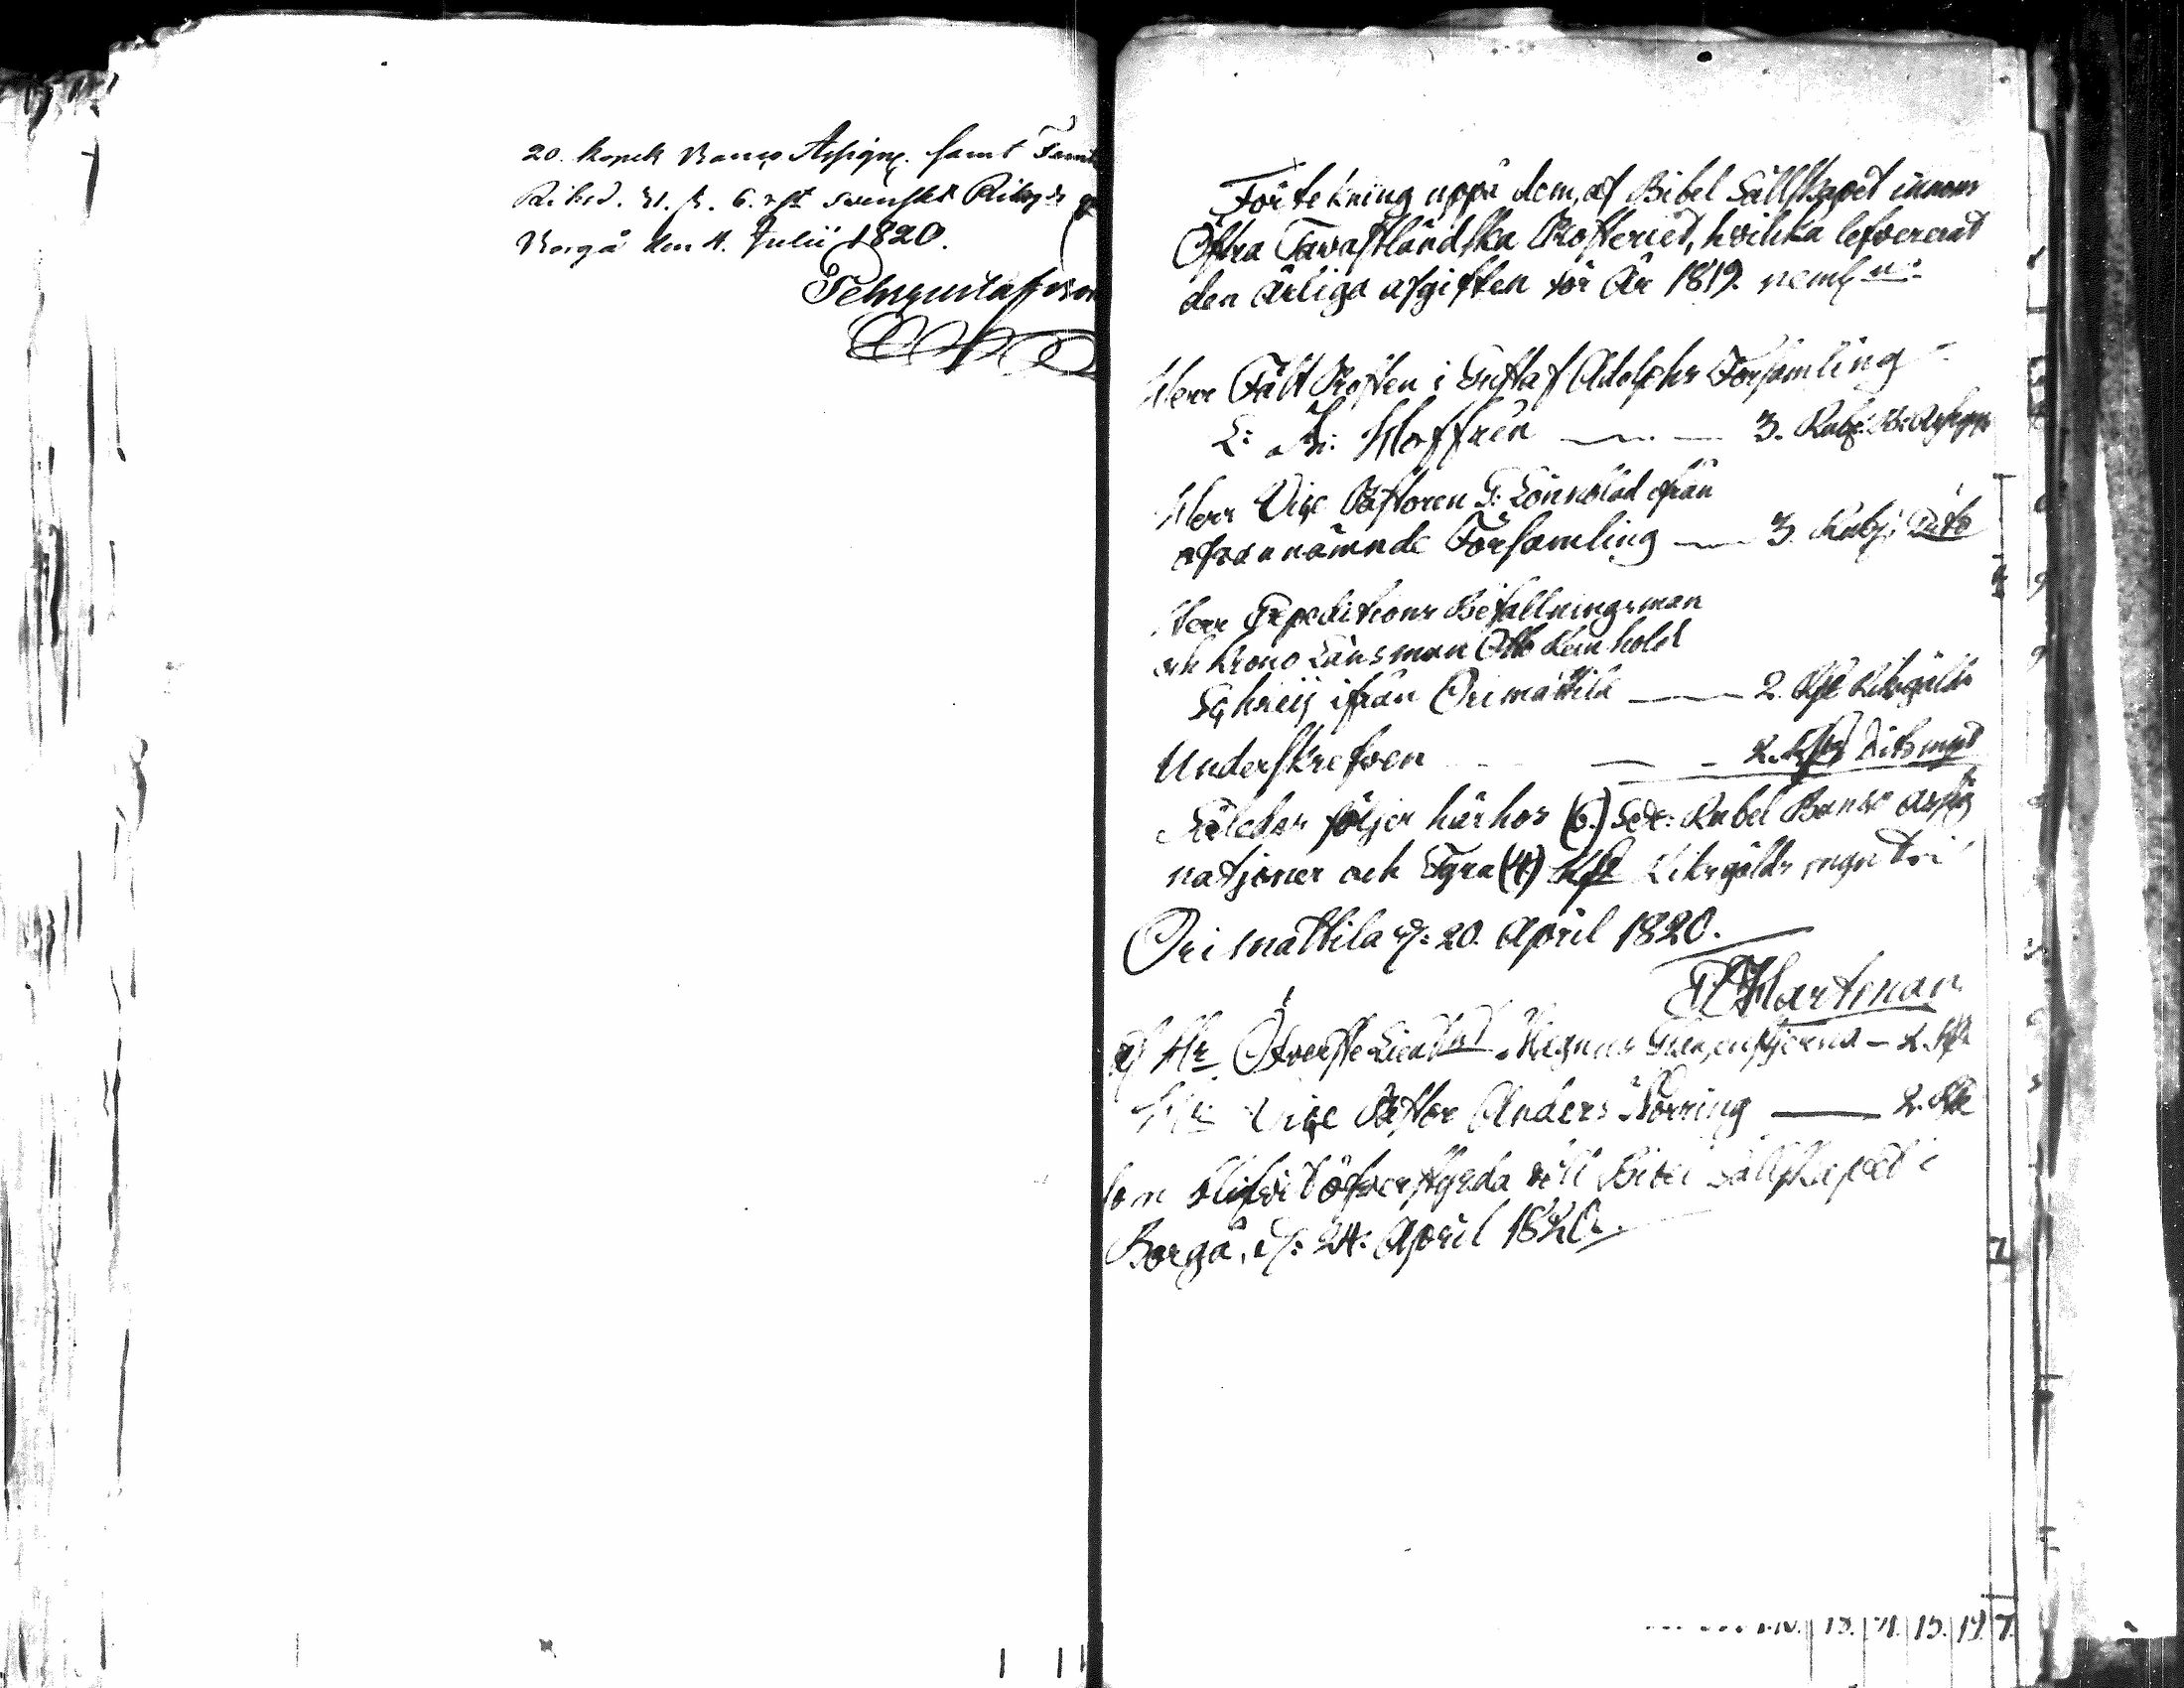 20. kopek Banco Assign. samt
Riksd. 31. s. 6. rst svenskt Riksg
Borgå den 4. Julii 1820.
Förtekning uppå dem, af Bibel Sällskapet innom
Öfra Tavastländska Prosteriet, hvilka lefvererat
den årliga afgiften för År 1819. neml.
Herr Fält Prosten i Gustaf Adolphs Församling
Hoffrén — 3. Rub. B. Assign
Herr Vice Pastoren G: Lönnblad från
ofvannämnde Församling — 3. Rub: Dito
Herr Expeditions Befallningsman
och Krono Länsman Otto Reinhold
Schreij ifrån Orimattila — 2. Rdr Riksgälds
Underskrefven — 2. Rdr
Således följer härhos (6.) Sex: Rubel Banco assig
nationer och Fyra (4) Rdr Riksgälds mynt i
Orimattila d: 20. April 1820.
Hartman
af Hr Öfverste Lieutnt Magnus — 2. Rdr
Hr Vice Pastor Anders Norring — 2. Rdr
som blifvit öfverstyrda till Bibel Sällskapet i
Borgå, d: 24. April 1820.